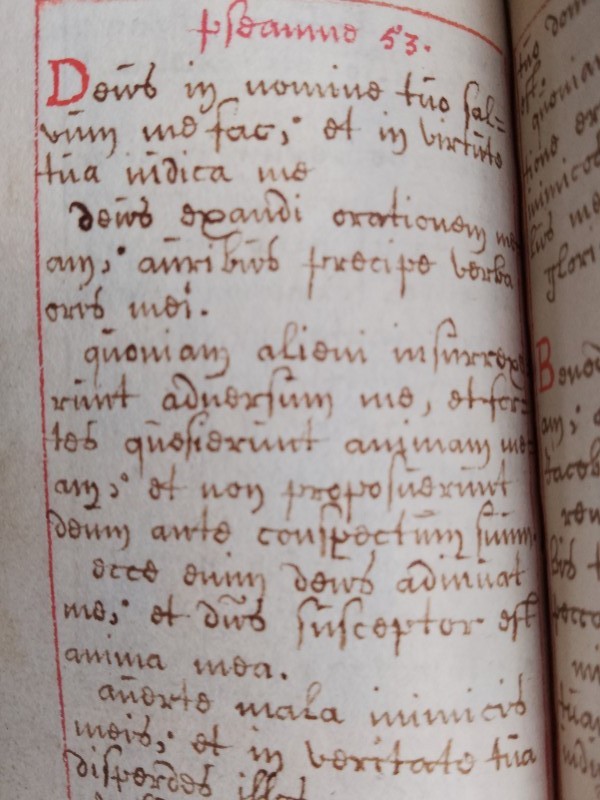 pseamne 53.
Deus in nomine tuo sal=
vum me fac; et in virtute
tua iudica me
deus exaudi orationem me
am; auribus precipe verba
oris mei.
quoniam alieni insurrexe
runt adversum me, et for=
tes quesierunt animam me
am; et non proposuerunt
deum ante conspectum suum.
ecce enim deus adiuuat
me; et dũs susceptor est
anima mea.
auerte mala inimicis
meis; et in veritate tua
disperdes illos
tuo domi
quoniam
inimicos
glori
Bened
am;
Jacob
tuam